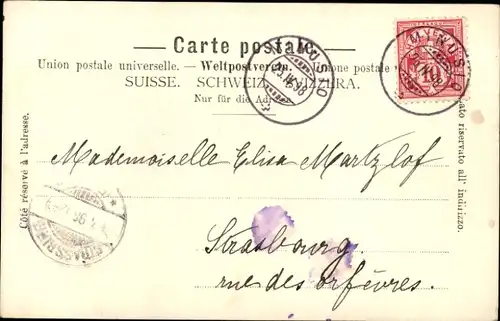 Carte postale.
Union postale universelle. — Weltpostverein. — Unione postale
SUISSE. SCHWEIZ. SVIZZERA.
Nur für die Adr
Côté réservé à l'adresse.
Lato riservato all' indirizzo.
10
Mademoiselle Elisa Martzlof
Strasbourg
rue des orfèvres.